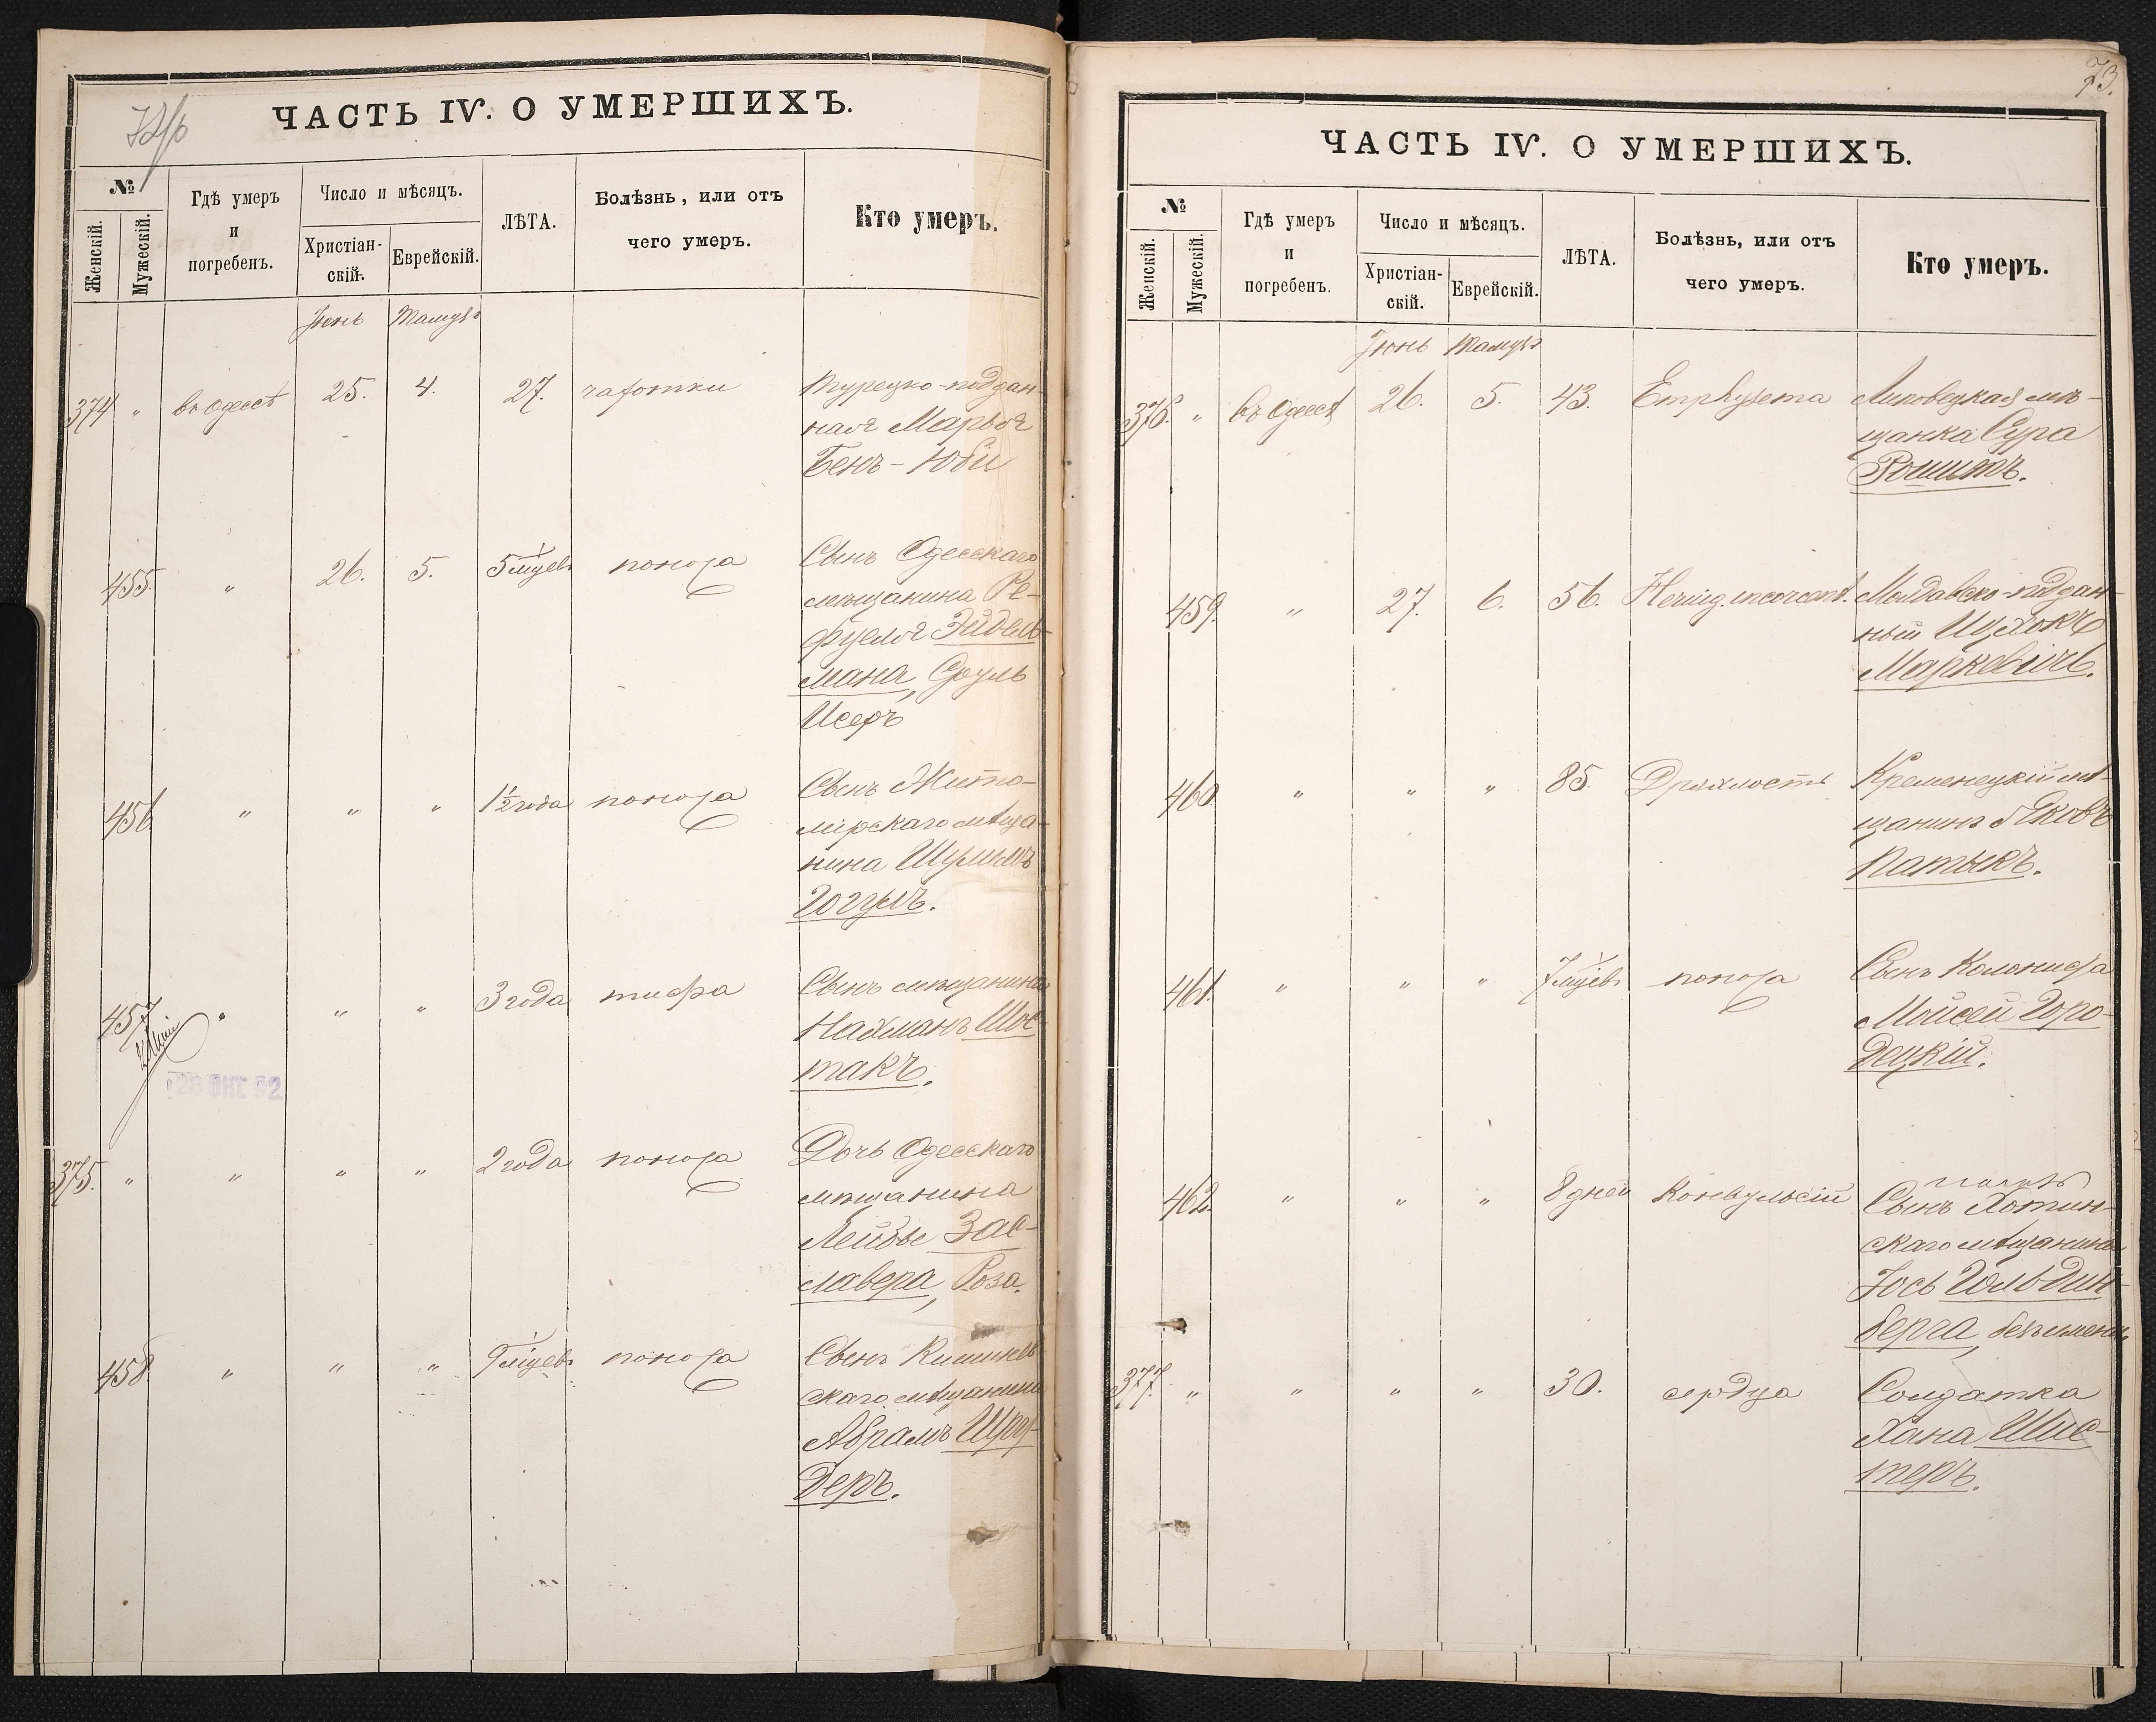 72/об
ЧАСТЬ IV. О УМЕРШИХЪ.
№
Женскій.
Мужескій.
Гдѣ умеръ
и
погребенъ.
Число и мѣсяцъ.
Христіан-
скій.
Еврейскій.
ЛѢТА.
Болѣзнь, или отъ
чего умеръ.
Кто умеръ.
Іюнь Тамузъ
374 " въ Одессѣ 25. 4. 27. чахотки Турецко-поддан-
ная Марья
Бенъ-Юби
455. " 26. 5. 5 мѣсяцев поноса Сынъ Одесскаго
мѣщанина Ре-
фуеля Эйдель-
мана, Сруль
Исеръ
456. " " " 1½ года поноса Сынъ Жито-
мірскаго мѣща-
нина Шулимъ
457 " " " 3 года тифа Сынъ мѣщанина
Нахманъ Шос-
такъ.
26 ОКТ. 92
375. " " " " 2 года поноса Дочь Одесскаго
мѣщанина
Лейбы Зас-
лавера, Роза.
458. " " " 9 мѣсяцев поноса Сынъ Кишинев-
скаго мѣщанина
Абрамъ
деръ.
73.
ЧАСТЬ IV. О УМЕРШИХЪ.
№
Женскій.
Мужескій.
Гдѣ умеръ
и
погребенъ.
Число и мѣсяцъ.
Христіан-
скій.
Еврейскій.
ЛѢТА.
Болѣзнь, или отъ
чего умеръ.
Кто умеръ.
Іюнь Тамузъ
376. " въ Одессѣ 26. 5. 43. Emphysema Липовецкая мѣ-
щанка Сура
459. " 27. 6. 56. Молдавско-поддан-
ный Ицхокъ
Марковичъ.
460 " " " 85. Дряхлость Кременецкій мѣ-
щанинъ Яковъ
Патыкъ.
461. " " " 7 мѣсяцев поноса Сынъ Колониста
Мойсей Горо-
децкій.
462. " " " 8 дней Конвульсій Сынъ Хотин-
скаго мѣщанина
Іось Гольдин-
берга,
377. " " " " 30. сердца Солдатка
Хана Шис-
теръ.